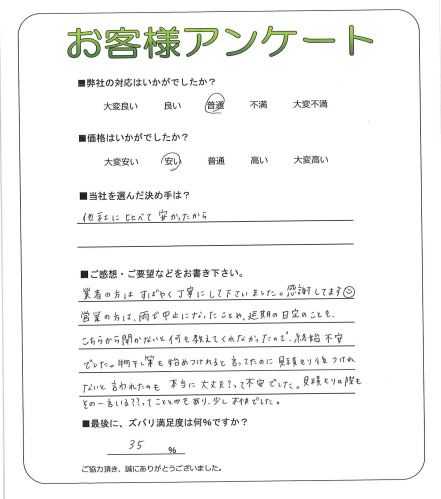 お客様アンケート
■弊社の対応はいかがでしたか?
大変良い 良い 普通 不満 大変不満
■価格はいかがでしたか?
大変安い 安い 普通 高い 大変高い
■当社を選んだ決め手は?
他社に比べて安かったから
■ご感想・ご要望などをお書き下さい。
業者の方はすばやく丁寧にして下さいました。感謝してます
営業の方は、雨で中止になったことや、延期の日定のことも、
こちらから聞かないと何も教えてくれなかったので、終始不安
でした。物干し竿も始めつけれると言ってたのに見積もり後つけれ
ないと言われたのも 本当に大丈夫?って不安でした。見積もりの際も
その一言いる??ってこととかもあり、少し不快でした。
■最後に、ズバリ満足度は何%ですか?
35 %
ご協力頂き、誠にありがとうございました。